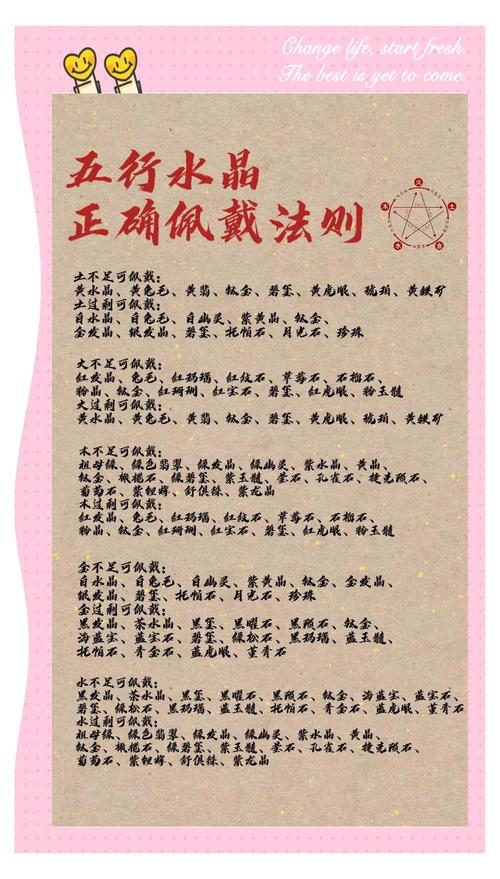 Change life, start fresh.
The best is yet to come.
五行水晶
正确佩戴法则
火
土
金
水
木
土不足可佩戴：
黄水晶、黄兔毛、黄翡、钛金、碧玺、黄虎眼、琥珀、黄铁矿
土过剩可佩戴：
白水晶、白兔毛、白幽灵、紫黄晶、钛金、
金发晶、银发晶、碧玺、托帕石、月光石、珍珠
火不足可佩戴：
红发晶、兔毛、红玛瑙、红纹石、草莓石、石榴石、
粉晶、钛金、红珊瑚、红宝石、碧玺、红虎眼、粉玉髓
火过剩可佩戴：
黄水晶、黄兔毛、黄翡、钛金、碧玺、黄虎眼、琥珀、黄铁矿
木不足可佩戴：
祖母绿、绿色翡翠、绿发晶、绿幽灵、紫水晶、黄晶、
钛金、橄榄石、绿碧玺、紫玉髓、萤石、孔雀石、捷克陨石、
葡萄石、紫锂辉、舒俱徕、紫龙晶
木过剩可佩戴：
红发晶、兔毛、红玛瑙、红纹石、草莓石、石榴石、
粉晶、钛金、红珊瑚、红宝石、碧玺、红虎眼、粉玉髓
金不足可佩戴：
白水晶、白兔毛、白幽灵、紫黄晶、钛金、金发晶、
银发晶、碧玺、托帕石、月光石、珍珠
金过剩可佩戴：
黑发晶、茶水晶、黑玺、黑曜石、黑陨石、钛金、
海蓝宝、蓝宝石、碧玺、绿松石、黑玛瑙、蓝玉髓、
托帕石、青金石、蓝虎眼、堇青石
水不足可佩戴：
黑发晶、茶水晶、黑玺、黑曜石、黑陨石、钛金、海蓝宝、蓝宝石、
碧玺、绿松石、黑玛瑙、蓝玉髓、托帕石、青金石、蓝虎眼、堇青石
水过剩可佩戴：
祖母绿、绿色翡翠、绿发晶、绿幽灵、紫水晶、黄晶、
钛金、橄榄石、绿碧玺、紫玉髓、萤石、孔雀石、捷克陨石、
葡萄石、紫锂辉、舒俱徕、紫龙晶